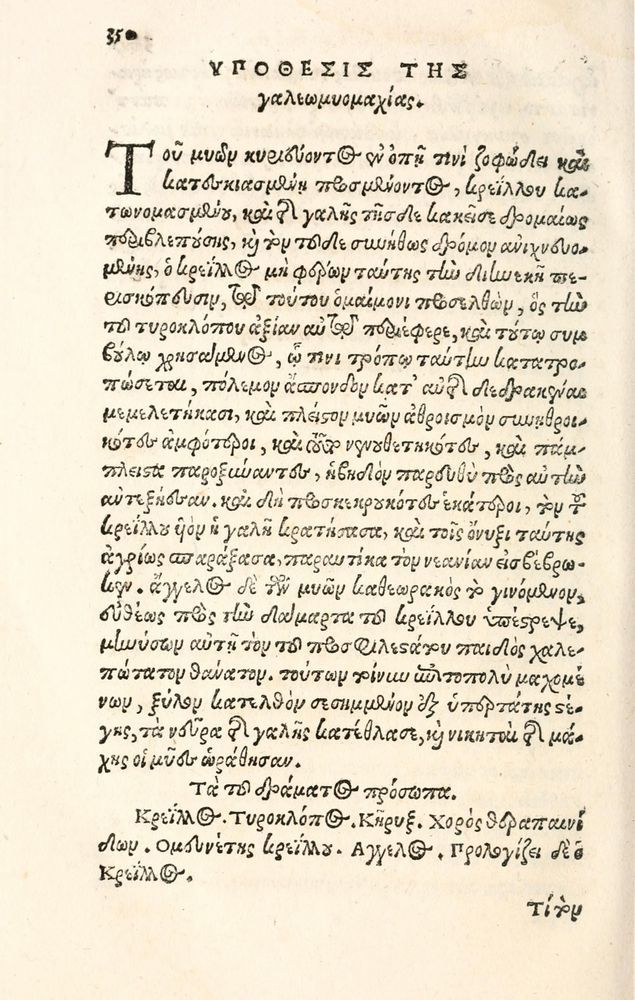 350
ΥΠΟΘΕΣΙΣ ΤΗΣ
γαλεωμυομαχίας.
Τοῦ μυῶν κυριεύοντος ἐν ὀπῇ τινὶ ζοφώδει καὶ
κατεσκιασμένῃ προσμένοντος, κρεΐλλου κα-
τωνομασμένου, καὶ τῆς γαλῆς τῆσδε κἀκεῖσε δρομαίως
περιβλεπούσης, κὶ τὸν τοῦδε συνήθως δρόμον ἀνιχνευο-
μένης, ὁ κρεΐλλος μὴ φέρων ταύτης τὴν διωνεκῆ πε-
ρισκόπευσιν, τῷ τούτου ὁμαίμονι προσελθὼν, ὃς τὴν
τοῦ τυροκλόπου ἀξίαν αὐτῷ περιέφερε, καὶ τούτῳ συμ
βούλῳ χρησάμενος, ᾧ τινι τρόπῳ ταύτην κατατρο-
πώσεται, πόλεμον ἄσπονδον κατ' αὐτῆς δεδρακέναι
μεμελετήκασι, καὶ πλεῖστον μυῶν ἀθροισμὸν συνηθροι-
κότες ἀμφότεροι, καὶ νενουθετηκότες, καὶ πάμ-
πλειστα παροξύναντες, ἡβηδὸν παρευθὺ πρὸς αὐτὴν
ἀντεξῄεσαν. καὶ δὴ προσκεκρυκότες ἑκάτεροι, τὸν τοῦ
κρεΐλλου υἱὸν ἡ γαλῆ κρατήσασα, καὶ τοῖς ὄνυξι ταύτης
ἀγρίως σπαράξασα, παραυτίκα τὸν νεανίαν εἰσβέβρω-
κεν. ἄγγελος δὲ τῶν μυῶν καθεωρακὸς τὸ γινόμενον,
εὐθέως πρὸς τὴν δάμαρτα τοῦ κρεΐλλου ὑπέστρεψε,
μηνύσων αὐτῇ τὸν τοῦ προσφιλεστάτου παιδὸς χαλε-
πώτατον θάνατον. τούτων τοίνυν ἐπιτοπολὺ μαχομέ
νων, ξύλον κατελθὸν σεσημμένον ἐξ ὑπερτάτης στέ-
γης, τὰ νεῦρα τῆς γαλῆς κατέθλασε, κὶ νικηταὶ τῆς μά-
χης οἱ μῦες ὡράθησαν.
Τὰ τοῦ δράματος πρόσωπα.
Κρεΐλλος. Τυροκλόπος. Κῆρυξ. Χορὸς θεραπαινί
δων. Ὁμευνέτης κρεΐλλου. Ἄγγελος. Προλογίζει δὲ ὁ
Κρεΐλλος.
Τί τὸν